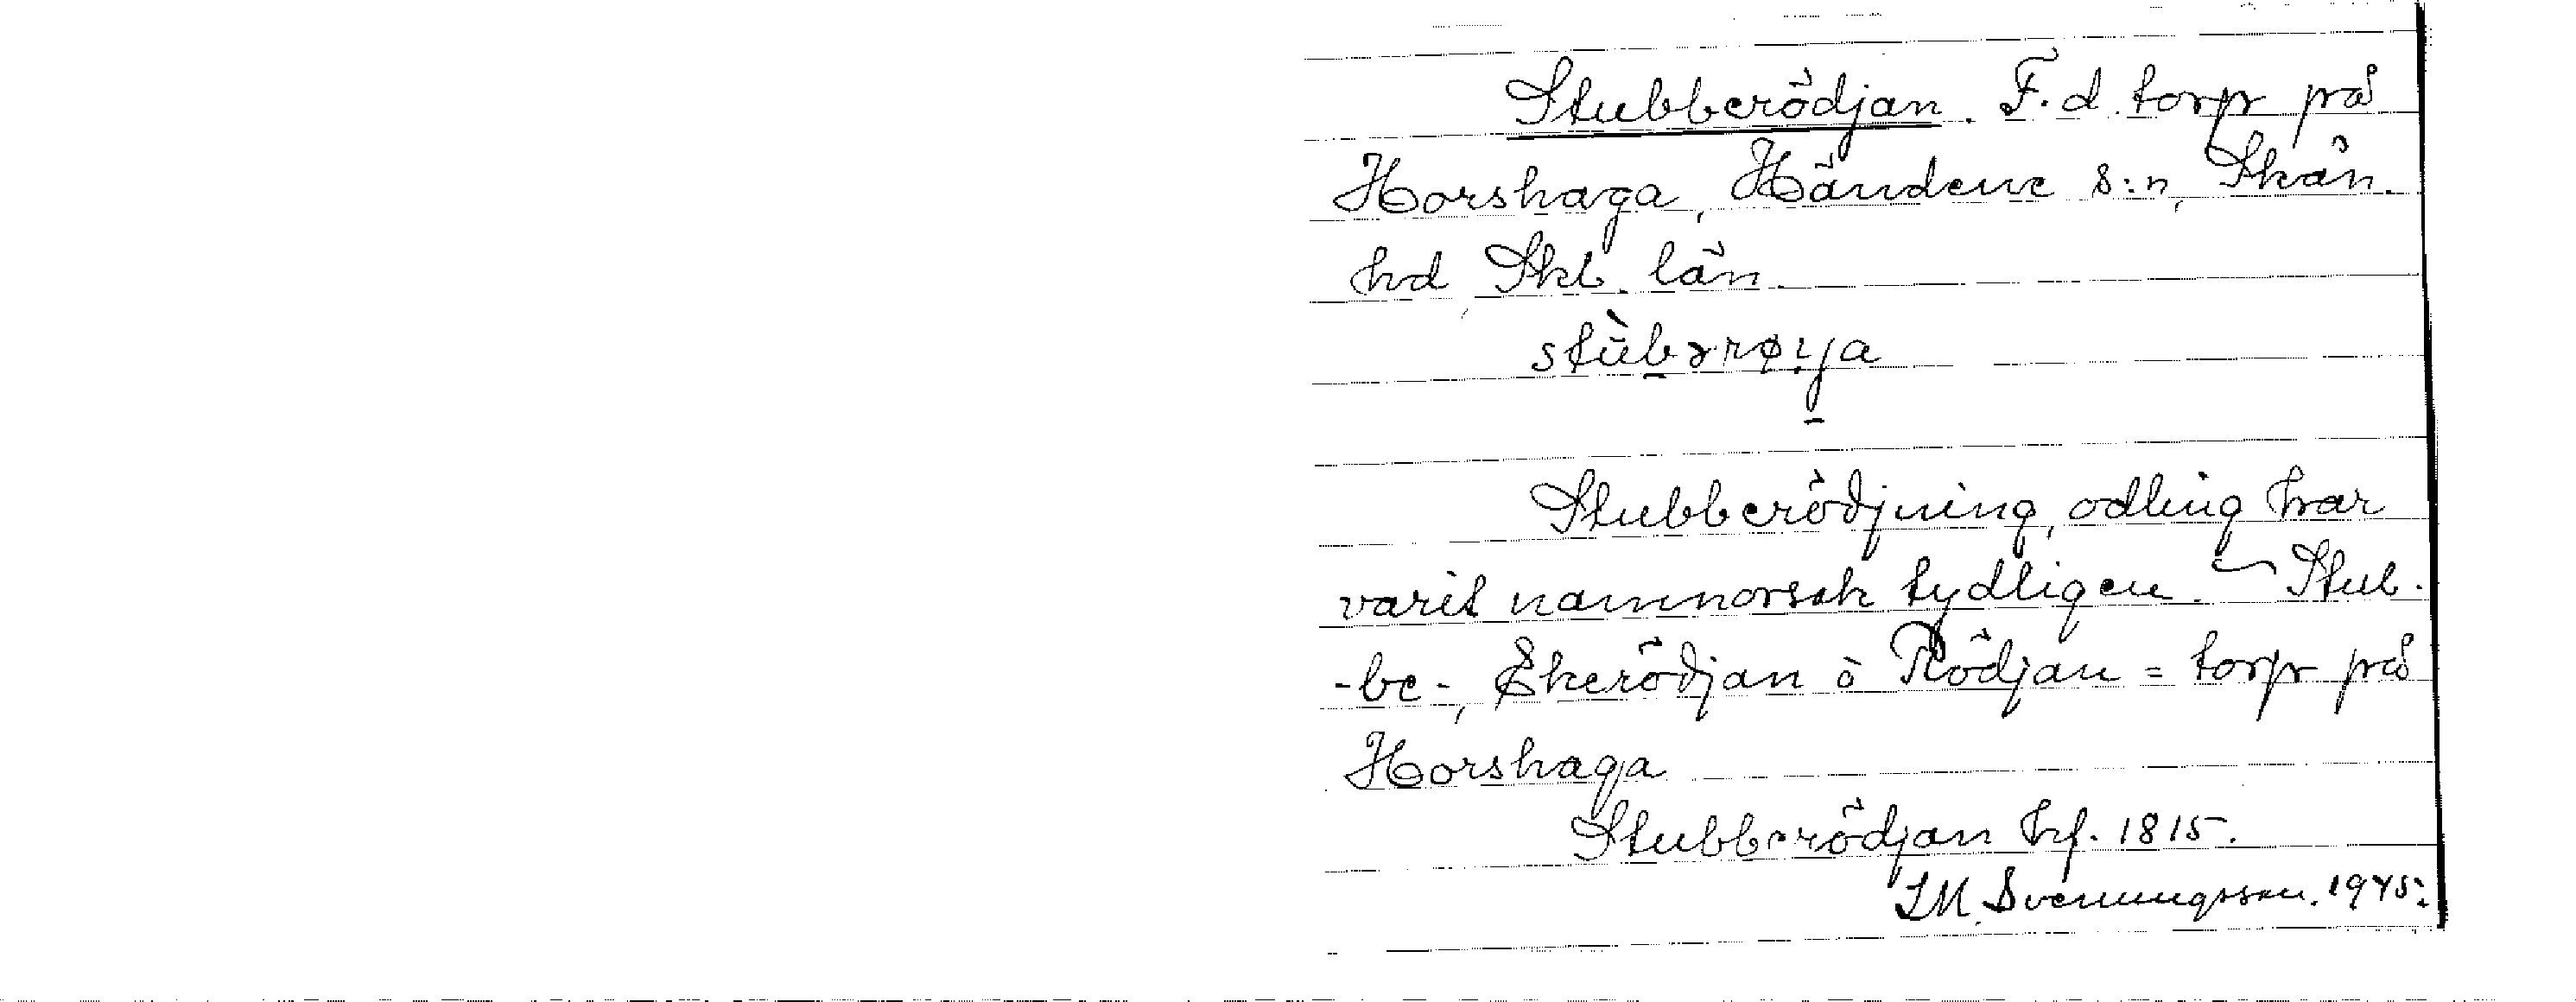 Stubberödjan. F.d. torp på
Horshaga, Händene s:n, Skån.
hd, Skb. län.
Stubberödjning, odling har
varit namnorsak tydligen. Stub-
-be-, Ekerödjan o Rödjan = torp på
Horshaga
Stubberödjan hf. 1815.
I.M. Svenungsson. 1945.